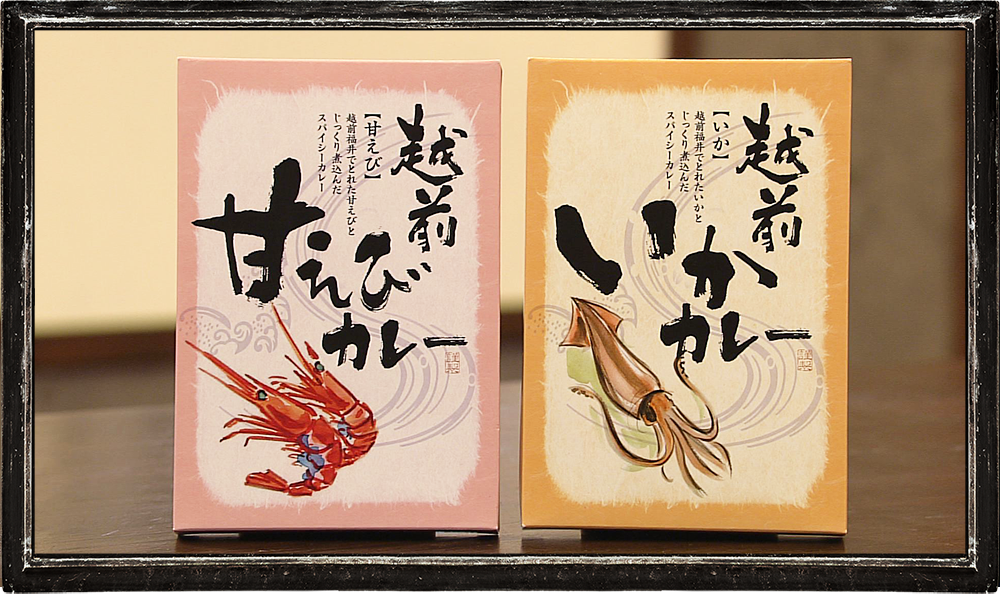 越前
甘えび
カレー
【甘えび】
越前福井でとれた甘えびと
じっくり煮込んだ
スパイシーカレー
越前
いか
カレー
【いか】
越前福井でとれたいかと
じっくり煮込んだ
スパイシーカレー